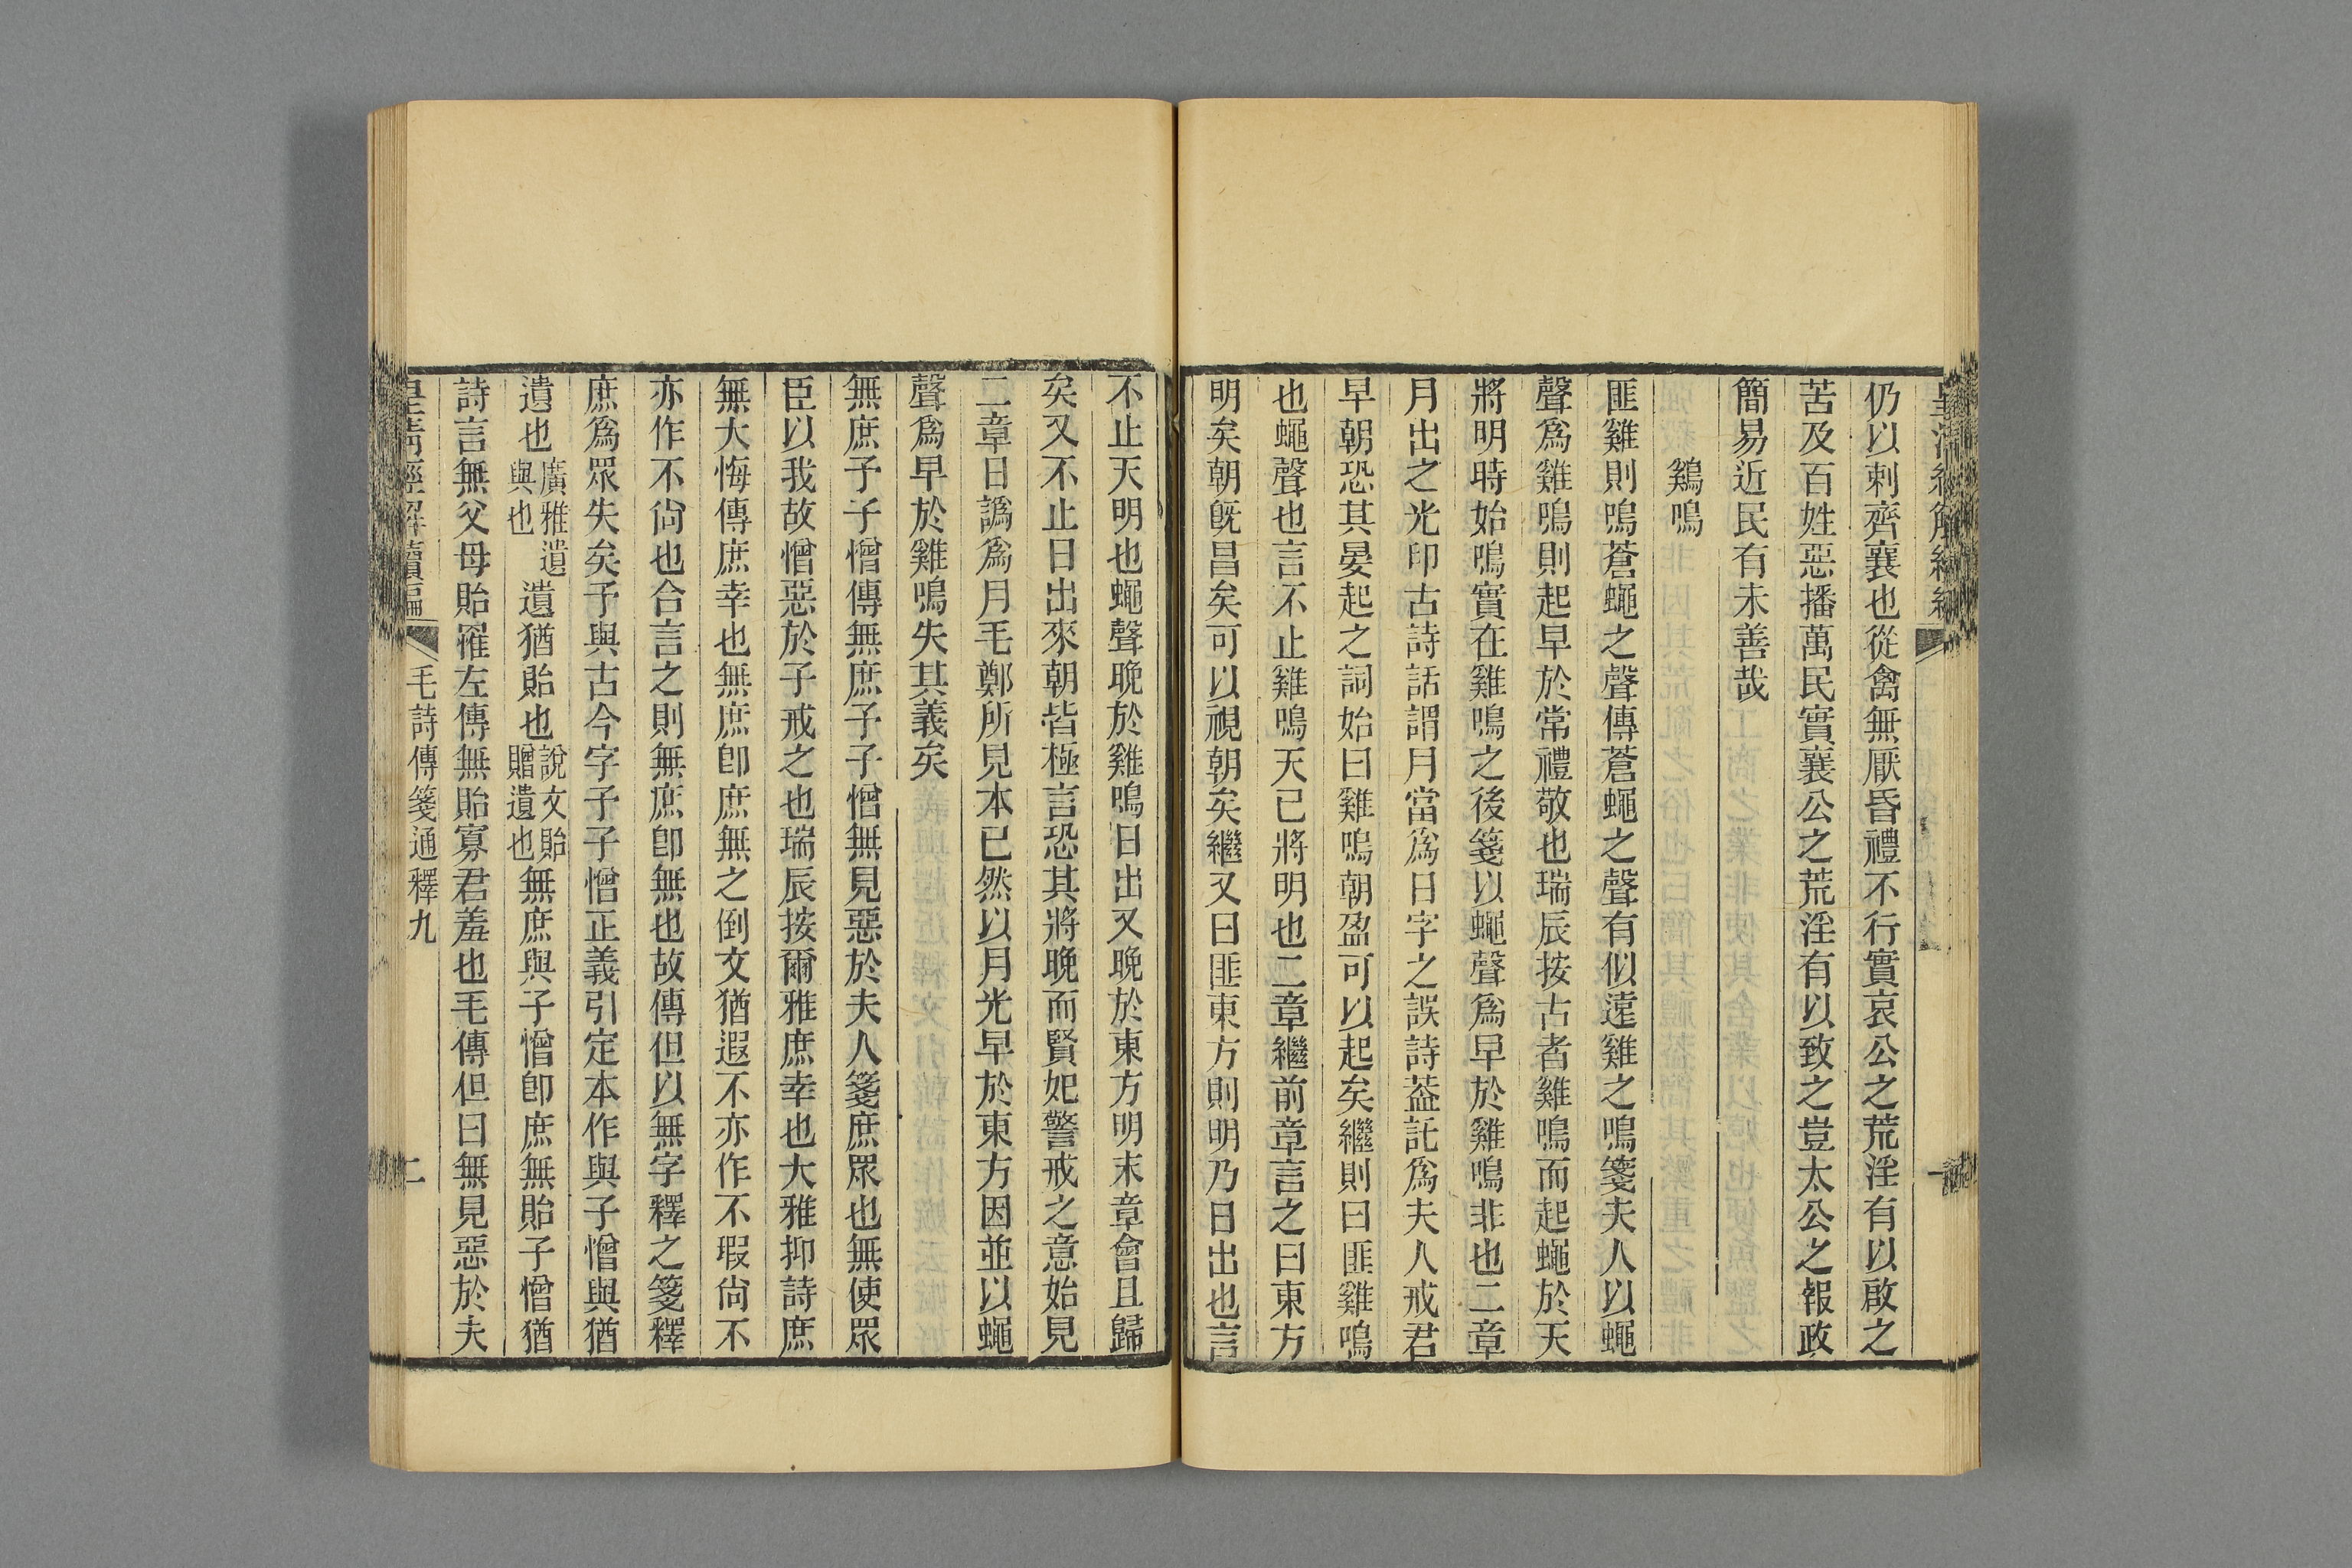 仍以刺齊襄也從禽無厭昏禮不行實哀公之荒淫有以啟之
苦及百姓惡播萬民實襄公之荒淫有以致之豈太公之報政
簡易近民有未善哉
鷄鳴
匪雞則鳴蒼蠅之聲傳蒼蠅之聲有似遠雞之鳴箋夫人以蠅
聲爲雞鳴則起早於常禮敬也瑞辰按古者雞鳴而起蠅於天
將明時始鳴實在雞鳴之後箋以蠅聲爲早於雞鳴非也二章
月出之光印古詩話謂月當爲日字之誤詩葢託爲夫人戒君
早朝恐其晏起之詞始曰雞鳴朝盈可以起矣繼則曰匪雞鳴
也蠅聲也言不止雞鳴天已將明也二章繼前章言之曰東方
明矣朝旣昌矣可以視朝矣繼又曰匪東方則明乃日出也言
不止天明也蠅聲晚於雞鳴日出又晚於東方明末章會且歸
矣又不止日出來朝皆極言恐其將晚而賢妃警戒之意始見
二章日譌爲月毛鄭所見本已然以月光早於東方因並以蠅
聲爲早於雞鳴失其義矣
無庶予子憎傳無庶予子憎無見惡於夫人箋庶眾也無使眾
臣以我故憎惡於子戒之也瑞辰按爾雅庶幸也大雅抑詩庶
無大悔傳庶幸也無庶卽庶無之倒文猶遐不亦作不瑕尙不
亦作不尙也合言之則無庶卽無也故傳但以無字釋之箋釋
庶爲眾失矣予與古今字予子憎正義引定本作與子憎與猶
遺也廣雅遺與也遺猶貽也說文貽贈遺也無庶與子憎卽庶無貽子憎猶
詩言無父母貽罹左傳無貽寡君羞也毛傳但曰無見惡於夫
皇淸經解續編
毛詩傳箋通釋九
二